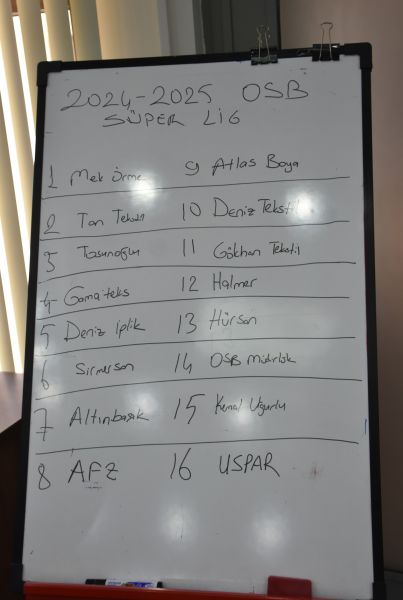 2024-2025 OSB
SÜPER LİG
1 Mek Örme 9 Atlas Boya
2 Tan Tekstil 10 Deniz Tekstil
3 Tosunoğlu 11 Gökhan Tekstil
4 Gamateks 12 Halmer
5 Deniz İplik 13 Hürsan
6 Sirmersan 14 OSB Müdürlük
7 Altınbaşak 15 Kemal Uğurlu
8 AFZ 16 USPAR